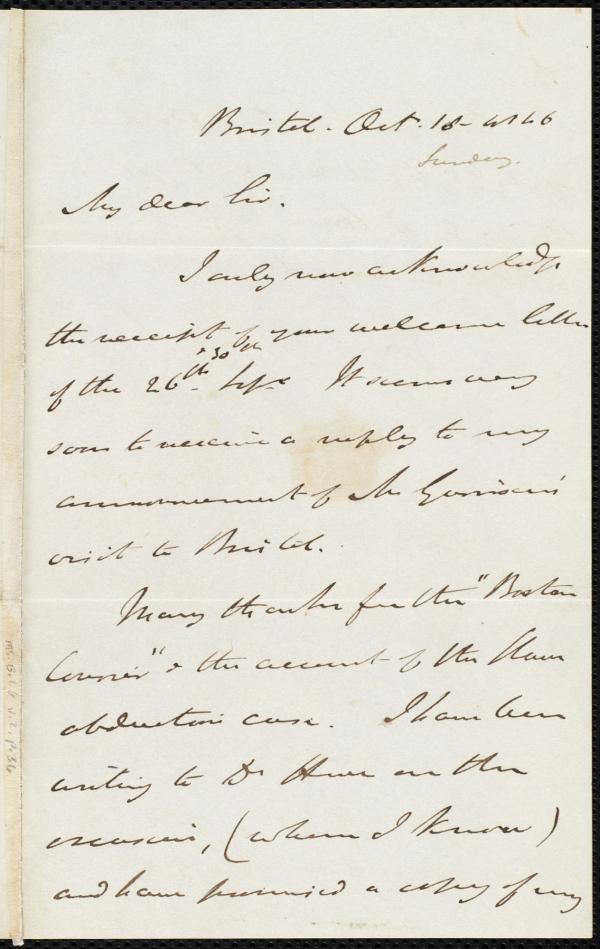 Bristol. Oct. 18 - 1846
Sunday.
My dear Sir.
I only now acknowledge
the receipt of your welcome letter
of the 26th & 30th Sept. It seems very
soon to receive a reply to my
announcement of Mr Garrison's
visit to Bristol.
Many thanks for the "Boston
Courier" & the account of the slave
abduction case. I have been
writing to Dr Howe on the
occasion, (whom I know)
and have promised a copy of my
Ms. B.1.6 v.2, p.36